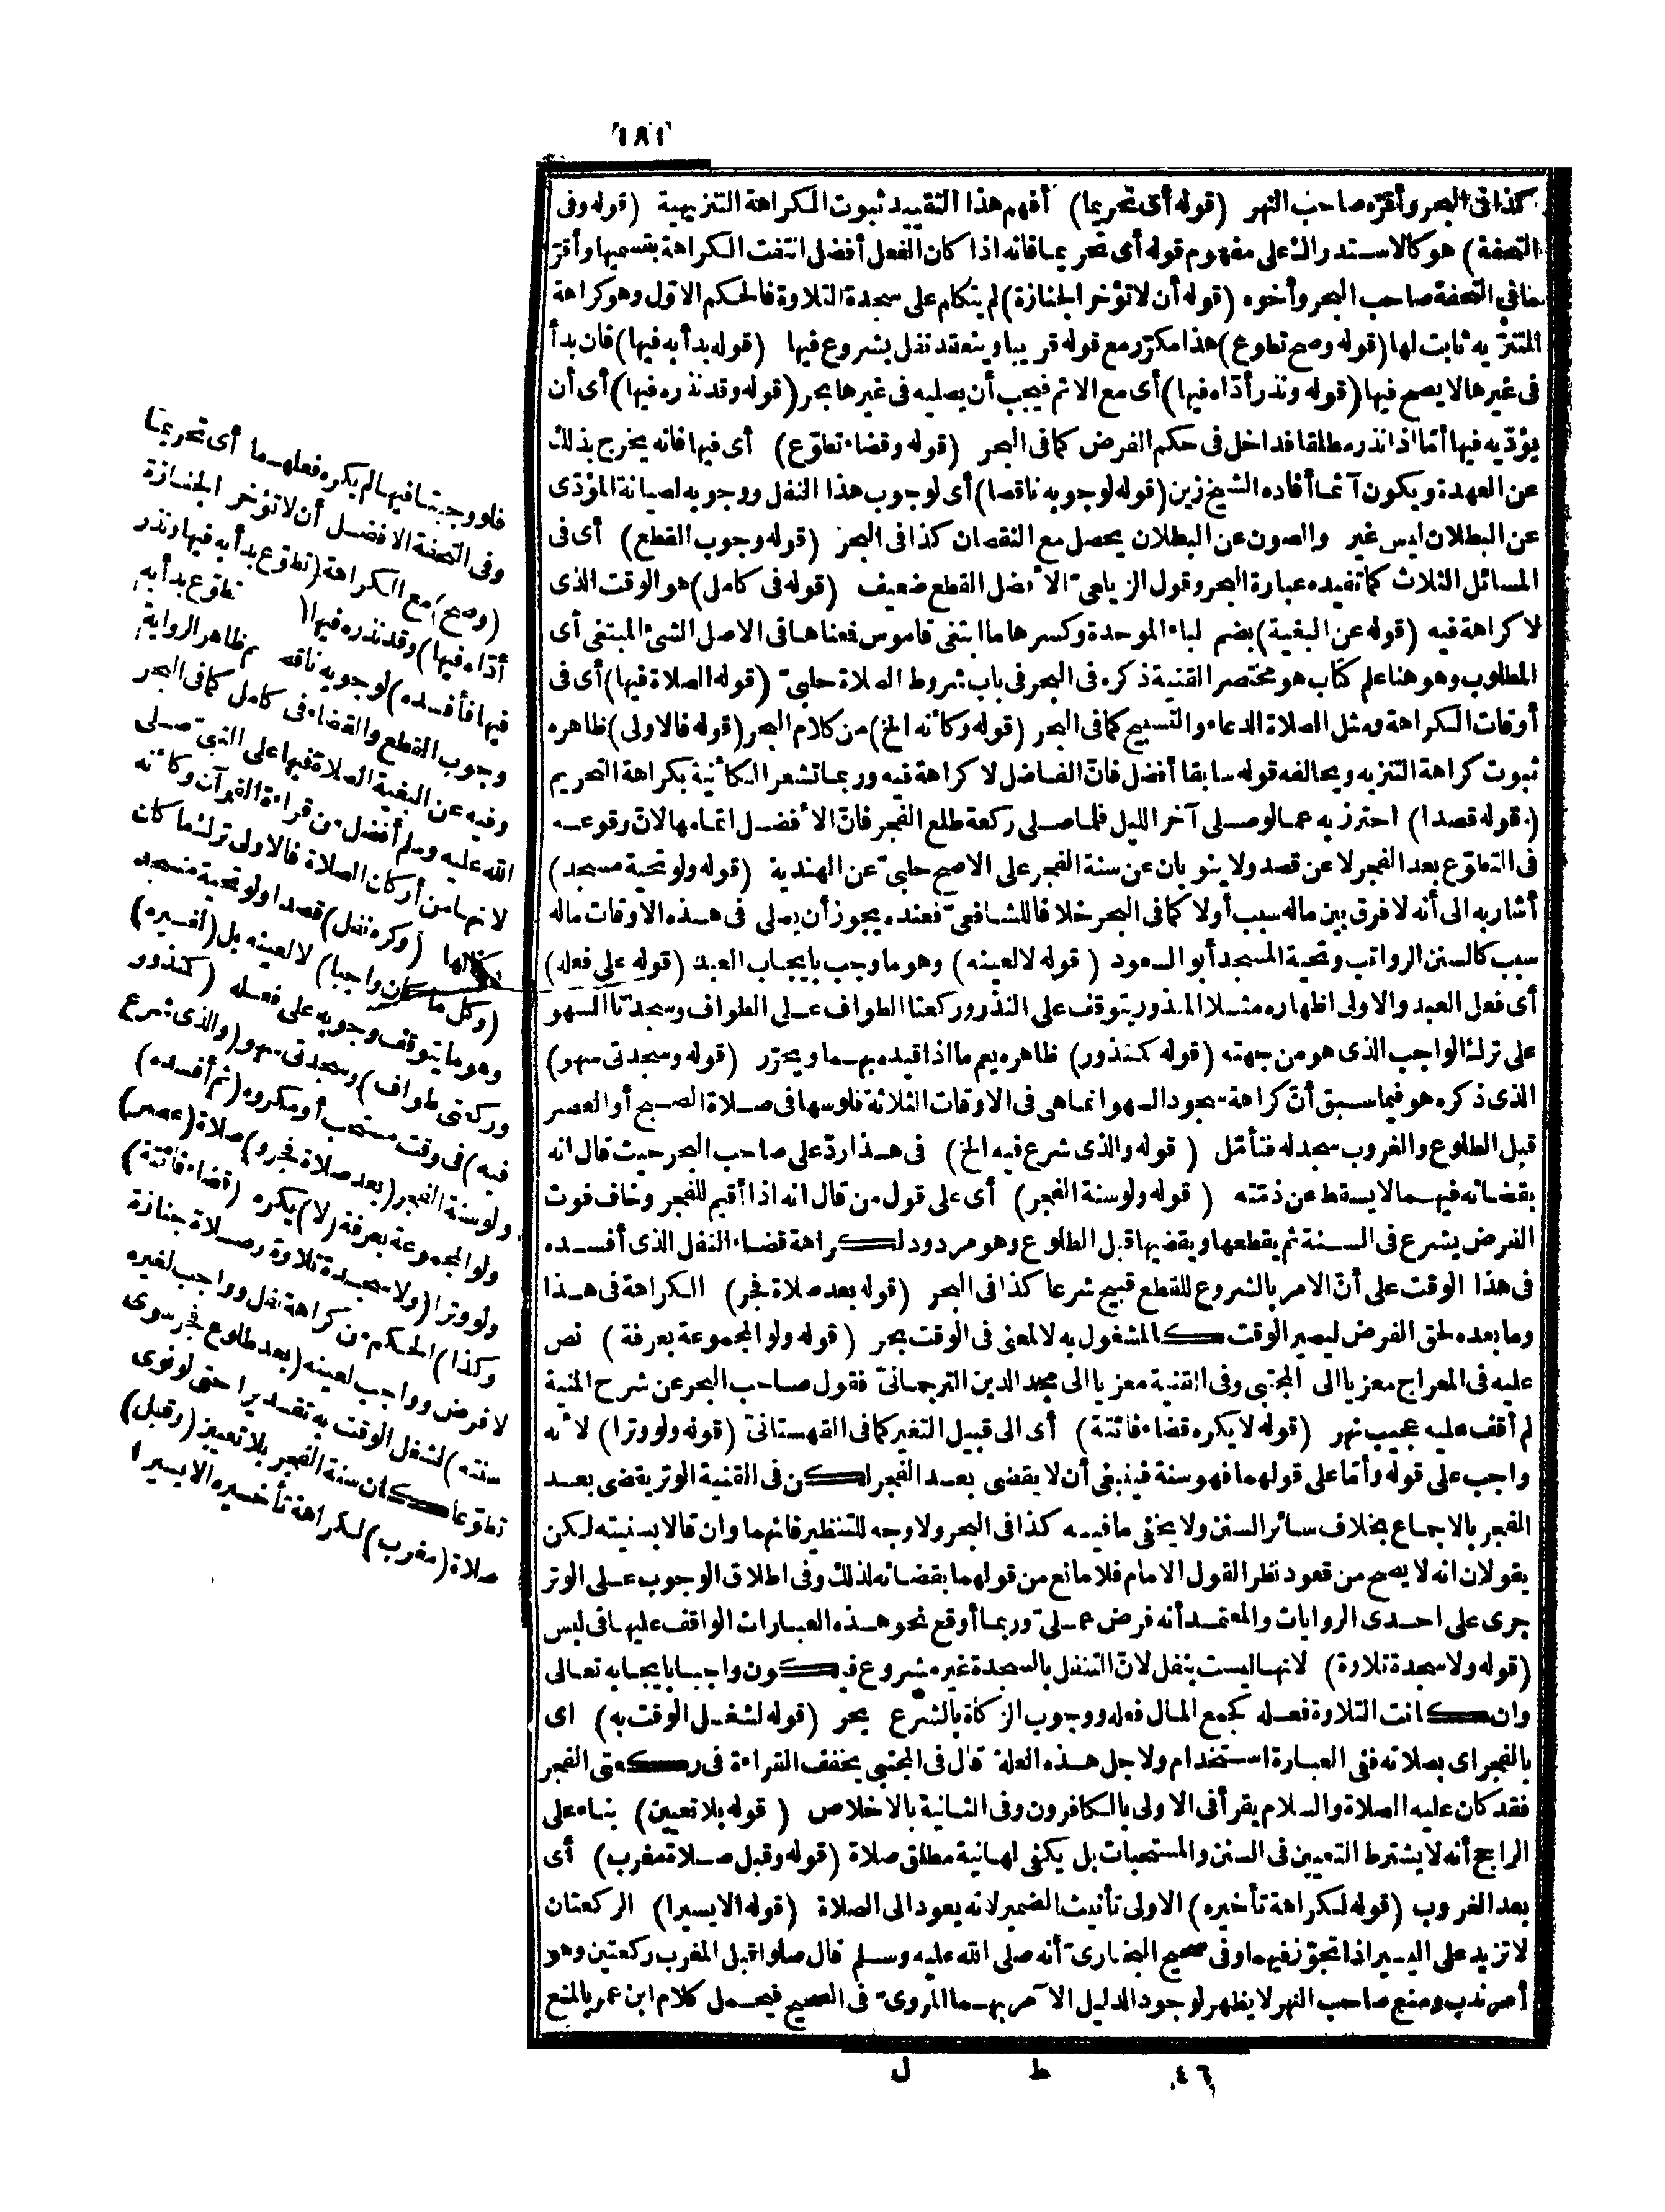 ١٨١
كذا فى البحر وأقرّه صاحب النهر (قوله أى تحريما) أفهم هذا التقييد ثبوت الكراهة التنزيهية (قوله وفى
التحفة) هو كالاستدراك على مفهوم قوله أى تحريما فانه اذا كان الفعل أفضل انتفت الكراهة بقسميها وأقرّ
مافى التحفة صاحب البحر وأخوه (قوله أن لا تؤخر الجنازة) لم يتكلم على سجدة التلاوة فالحكم الاوّل وهو كراهة
التنزيه ثابت لها (قوله وصح تطوع) هذا مكرّر مع قوله قريبا وينعقد نفل بشروع فيها (قوله بدأ به فيها) فان بدأ
فى غيرها لا يصح فيها (قوله ونذر أدّاه فيها) أى مع الاثم فيجب أن يصليه فى غيرها بحر (قوله وقد نذره فيها) أى أن
يؤدّيه فيها أمّا اذا نذر مطلقا فداخل فى حكم الفرض كما فى البحر (قوله وقضاء تطوّع) أى فيها فانه يخرج بذلك
عن العهدة ويكون آثما أفاده الشيخ زين (قوله لوجوبه ناقصا) أى لوجوب هذا النفل ووجوبه لصيانة المؤدّى
عن البطلان ليس غير والصون عن البطلان يحصل مع النقصان كذا فى البحر (قوله وجوب القطع) أى فى
المسائل الثلاث كما تفيده عبارة البحر وقول الزيلعىّ الأفضل القطع ضعيف (قوله فى كامل) هو الوقت الذى
لا كراهة فيه (قوله عن البغية) بضم الباء الموحدة وكسرها ما ابتغى قاموس فمعناها فى الاصل الشئ المبتغى أى
المطلوب وهو هنا علم كتاب هو مختصر القنية ذكره فى البحر فى باب شروط الصلاة حلبىّ (قوله الصلاة فيها) أى فى
أوقات الكراهة ومثل الصلاة الدعاء والتسبيح كما فى البحر (قوله وكأنه الخ) من كلام البحر (قوله فالاولى) ظاهره
ثبوت كراهة التنزيه ويخالفه قوله سابقا أفضل فانّ الفاضل لا كراهة فيه وربما تشعر الكأنية بكراهة التحريم
(قوله قصدا) احترز به عما لو صلى آخر الليل فلما صلى ركعة طلع الفجر فانّ الأفضل اتمامها لانّ وقوعه
فى التطوّع بعد الفجر لا عن قصد ولا ينوبان عن سنة الفجر على الاصح حلبىّ عن الهندية (قوله ولو تحية مسجد)
أشار به الى أنه لا فرق بين ماله سبب أولا كما فى البحر خلافا للشافعىّ فعنده يجوز أن يصلى فى هذه الاوقات ماله
سبب كالسنن الرواتب وتحية المسجد أبو السعود (قوله لا لعينه) وهو ما وجب بايجاب العبد (قوله على فعله)
أى فعل العبد والاولى اظهاره مثلا المنذور يتوقف على النذر وركعتا الطواف على الطواف وسجدتا السهو
على ترك الواجب الذى هو من جهته (قوله كمنذور) ظاهره يعم ما اذا قيده بهما ويحرّر (قوله وسجدتى سهو)
الذى ذكره هو فيما سبق أنّ كراهة سجود السهو انما هى فى الاوقات الثلاثة فلو سها فى صلاة الصبح أو العصر
قبل الطلوع والغروب سجد له فتأمّل (قوله والذى شرع فيه الخ) فى هذا ردّ على صاحب البحر حيث قال انه
بقضائه فيهما لا يسقط عن ذمّته (قوله ولو سنة الفجر) أى على قول من قال انه اذا أقيم للفجر وخاف فوت
الفرض يشرع فى السنة ثم يقطعها ويقضيها قبل الطلوع وهو مردود لكراهة قضاء النفل الذى أفسده
فى هذا الوقت على أنّ الامر بالشروع للقطع قبيح شرعا كذا فى البحر (قوله بعد صلاة فجر) الكراهة فى هذا
وما بعده لحق الفرض ليصير الوقت كالمشغول به لا لمعنى فى الوقت بحر (قوله ولو المجموعة بعرفة) نص
عليه فى المعراج معزيا الى المجتبى وفى القنية معزيا الى مجد الدين الترجمانىّ فقول صاحب البحر عن شرح المنية
لم أقف عليه عجيب نهر (قوله لا يكره قضاء فائتة) أى الى قبيل التغير كما فى القهستانىّ (قوله ولو وترا) لأنه
واجب على قوله وأمّا على قولهما فهو سنة فينبغى أن لا يقضى بعد الفجر لكن فى القنية الوتر يقضى بعد
الفجر بالاجماع بخلاف سائر السنن ولا يخفى ما فيه كذا فى البحر ولا وجه للتنظير فانهما وان قالا بسنيته لكن
يقولان انه لا يصح من قعود نظرا لقول الامام فلا مانع من قولهما بقضائه لذلك وفى اطلاق الوجوب على الوتر
جرى على احدى الروايات والمعتمد أنه فرض عملىّ وربما أوقع نحو هذه العبارات الواقف عليها فى لبس
(قوله ولا سجدة تلاوة) لانها ليست بنفل لانّ التنفل بالسجدة غير مشروع فيكون واجبا بايجابه تعالى
وان كانت التلاوة فعله كجمع المال فعله ووجوب الزكاة بالشرع بحر (قوله لشغل الوقت به) اى
بالفجر اى بصلاته ففى العبارة استخدام ولاجل هذه العلة قال فى المجتبى يخفف القراءة فى ركعتى الفجر
فقد كان عليه الصلاة والسلام يقرأ فى الاولى بالكافرون وفى الثانية بالاخلاص (قوله بلا تعيين) بناء على
الراجح أنه لا يشترط التعيين فى السنن والمستحبات بل يكفى لها نية مطلق صلاة (قوله وقبل صلاة مغرب) أى
بعد الغروب (قوله لكراهة تأخيره) الاولى تأنيث الضمير لانه يعود الى الصلاة (قوله الا يسيرا) الركعتان
لا تزيد على اليسير اذا تجوّز فيهما وفى صحيح البخارىّ أنه صلى الله عليه وسلم قال صلوا قبل المغرب ركعتين وهو
أمر ندب ومنع صاحب النهر لا يظهر لوجود الدليل الآمر بهما المروىّ فى الصحيح فيحمل كلام ابن عمر بالمنع
فلو وجبتا فيها لم يكره فعلهما أى تحريما
وفى التحفة الافضل أن لا تؤخر الجنازة
(وصح) مع الكراهة (تطوّع بدأ به فيها ونذر
أدّاه فيها) وقد نذره فيها ( تطوّع بدأ به
فيها فأفسده) لوجوبه ناقصا ثم ظاهر الرواية
وجوب القطع والقضاء فى كامل كما فى البحر
وفيه عن البغية الصلاة فيها على النبىّ صلى
الله عليه وسلم أفضل من قراءة القرآن وكأنه
لانها من أركان الصلاة فالاولى ترك ما كان
لها (وكره نفل) قصدا ولو تحية مسجد
(وكل ما كان واجبا) لا لعينه بل (لغيره)
وهو ما يتوقف وجوبه على فعله (كمنذور
وركعتى طواف) وسجدتى سهو (والذى شرع
فيه) فى وقت مستحب أو مكروه (ثم أفسده)
ولو سنة الفجر (بعد صلاة فجر و) صلاة (عصر)
ولو المجموعة بعرفة (لا) يكره (قضاء فائتة)
ولو وترا (ولا سجدة تلاوة وصلاة جنازة
وكذا) الحكم من كراهة نفل وواجب لغيره
لا فرض وواجب لعينه (بعد طلوع فجر سوى
سنته) لشغل الوقت به تقديرا حتى لو نوى
تطوّعا كان سنة الفجر بلا تعيين (وقبل)
صلاة (مغرب) لكراهة تأخيره الا يسيرا
٤٦ ط ل